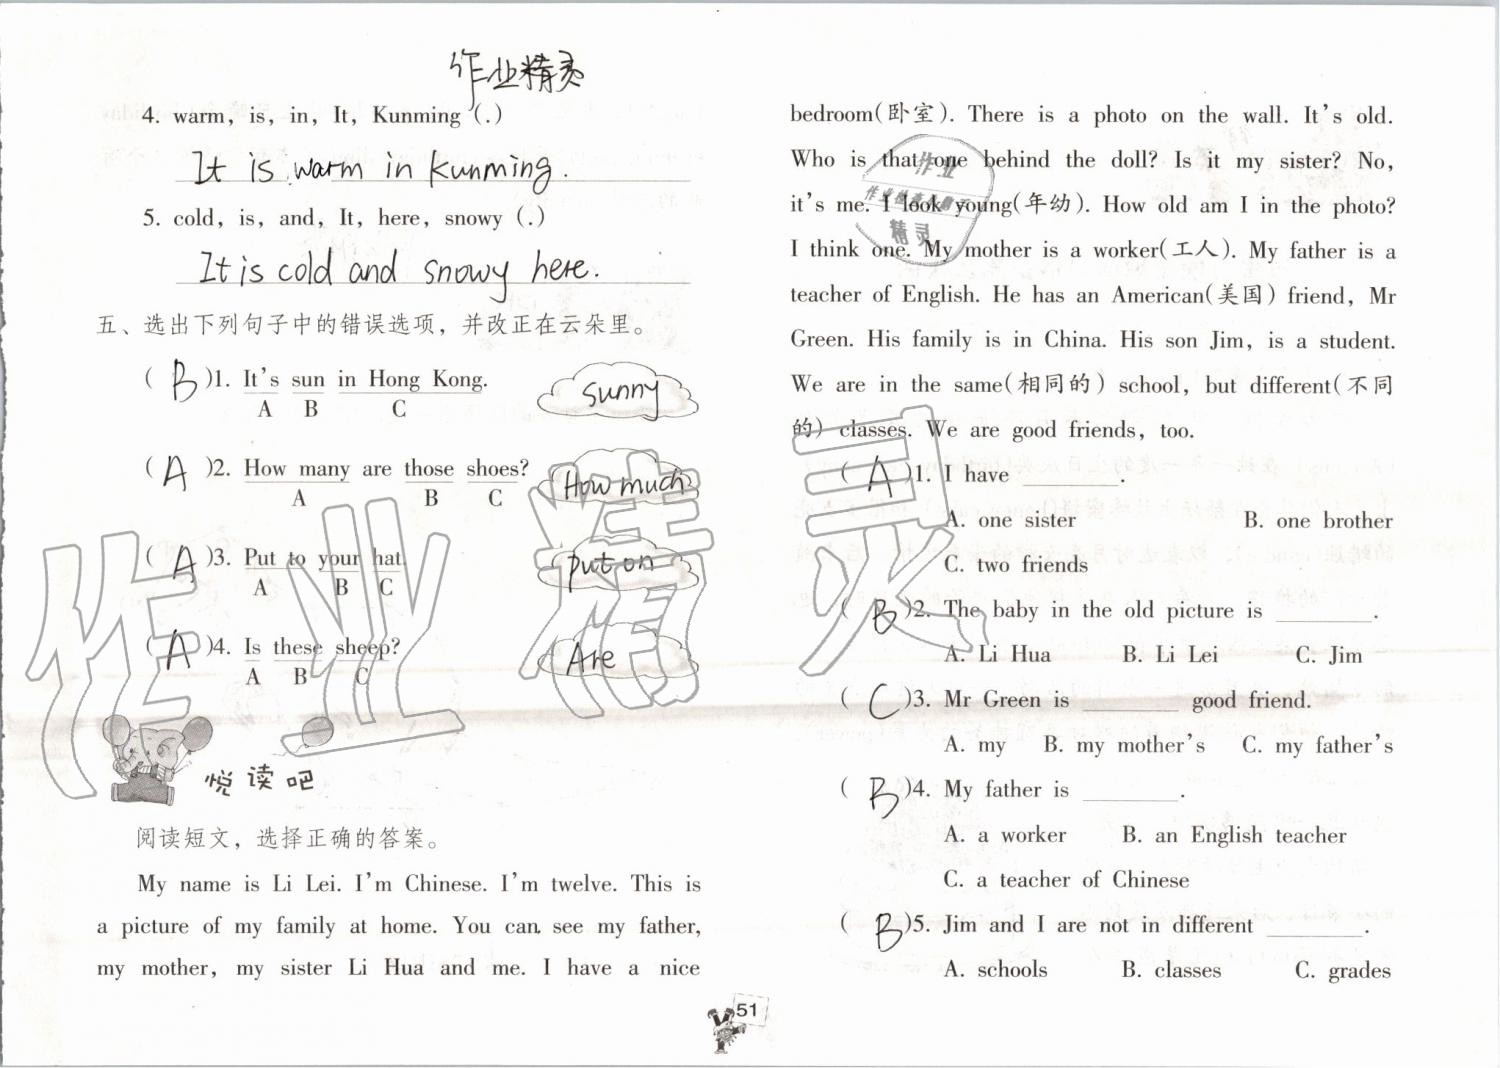 作业精灵
4. warm, is, in, It, Kunming (.)
It is warm in Kunming.
5. cold, is, and, It, here, snowy (.)
It is cold and snowy here.
五、选出下列句子中的错误选项，并改正在云朵里。
( B )1. It's sun in Hong Kong. sunny
A B C
( A )2. How many are those shoes? How much
A B C
( A )3. Put to your hat. put on
A B C
( A )4. Is these sheep? Are
A B C
悦读吧
阅读短文，选择正确的答案。
My name is Li Lei. I'm Chinese. I'm twelve. This is
a picture of my family at home. You can see my father,
my mother, my sister Li Hua and me. I have a nice
bedroom(卧室). There is a photo on the wall. It's old.
Who is that one behind the doll? Is it my sister? No,
it's me. I look young(年幼). How old am I in the photo?
I think one. My mother is a worker(工人). My father is a
teacher of English. He has an American(美国) friend, Mr
Green. His family is in China. His son Jim, is a student.
We are in the same(相同的) school, but different(不同
的) classes. We are good friends, too.
( A )1. I have ________.
A. one sister B. one brother
C. two friends
( B )2. The baby in the old picture is ________.
A. Li Hua B. Li Lei C. Jim
( C )3. Mr Green is ________ good friend.
A. my B. my mother's C. my father's
( B )4. My father is ________.
A. a worker B. an English teacher
C. a teacher of Chinese
( B )5. Jim and I are not in different ________.
A. schools B. classes C. grades
51
作业精灵
作业
精灵